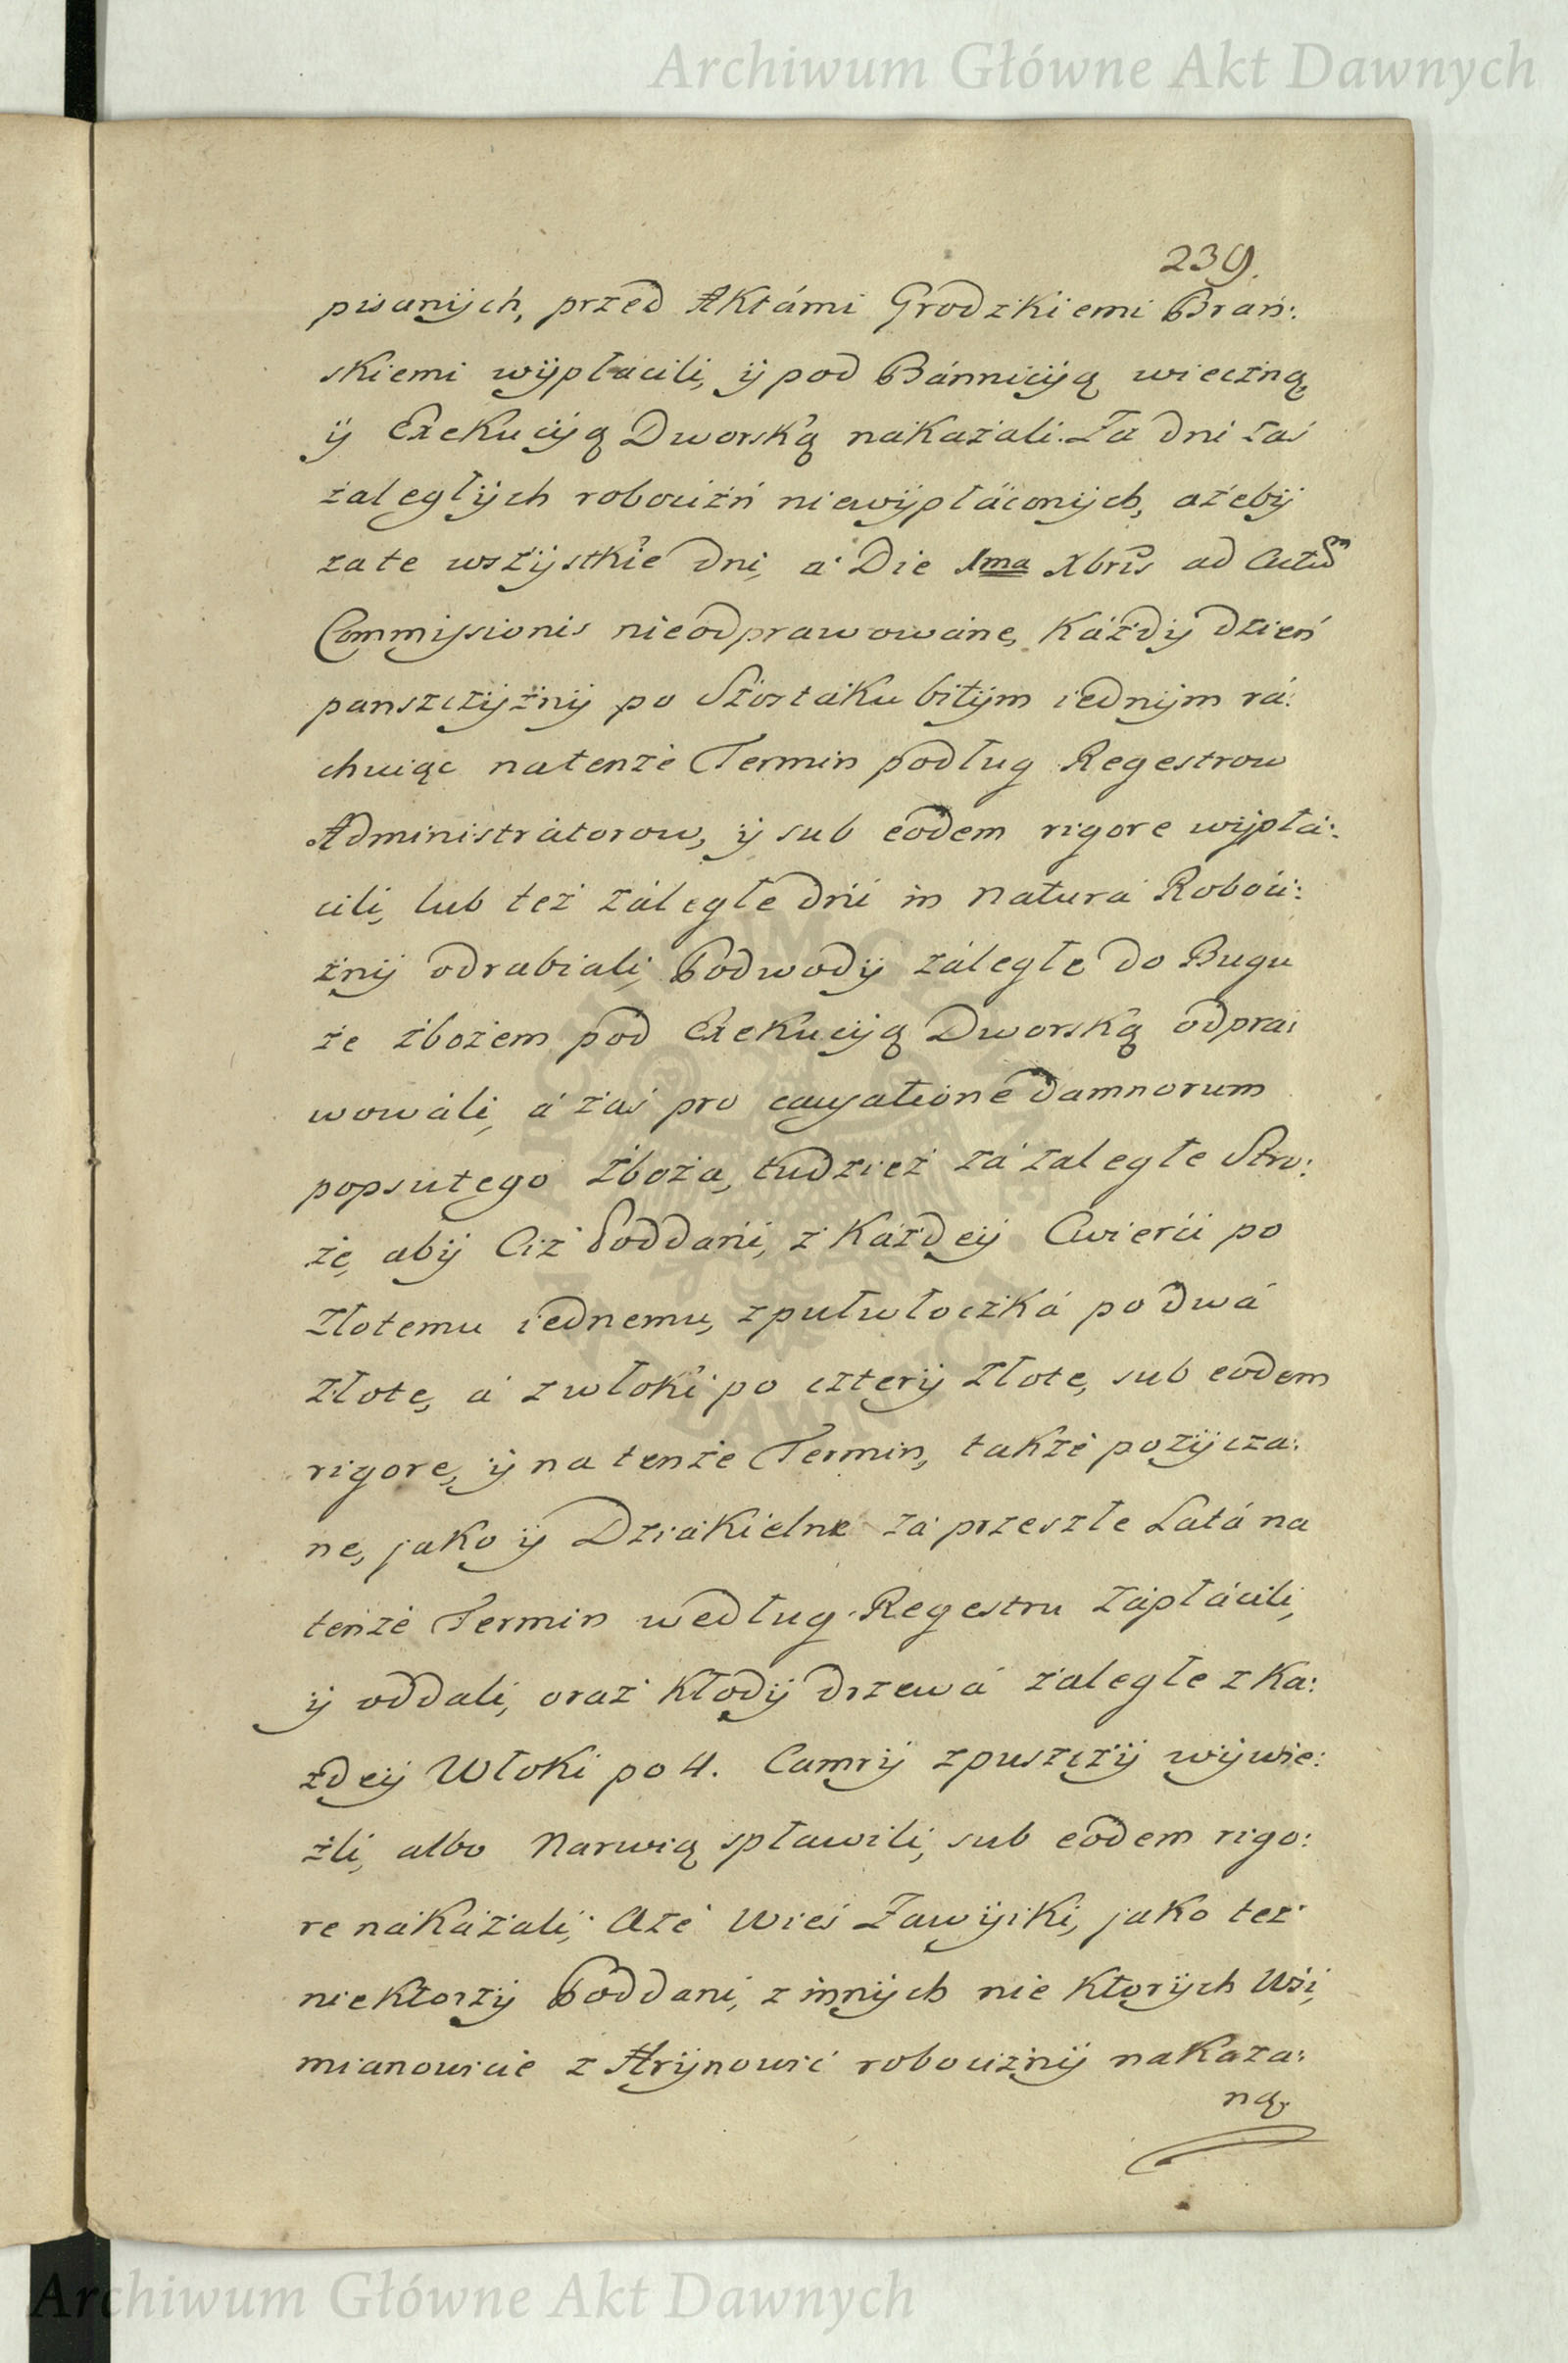 Archiwum Główne Akt Dawnych
239.
pisanÿch, przed Aktámi Grodzkiemi Brań:
skiemi wÿpłacili, ÿ pod Bánnicÿą wieczną
ÿ Exekucÿą Dworską nakazali. Za dni zaś
zaległÿch robocizń niewÿpłáconÿch, ażebÿ
zate wszÿstkie dni, a Die 1ma Xbris ad Actum
Commissionis nieodprawowáne, Káżdÿ dzień
panszczÿznÿ po Szostaku bitÿm iednÿm rá:
chuiąc natenże Termin podług Regestrow
Administrátorow, ÿ sub eodem rigore wÿpłá:
cili, lub też záległe dni in natura Roboci:
znÿ odrabiali, Podwodÿ záległe do Bugu
ze zbożem pod Exekucÿą Dworską odpra:
wowáli, á zaś pro causatione damnorum
popsutego Zboża, tudzież zá zaległe Stro:
że, abÿ Ciż Poddani, z Każdeÿ Cwierci po
Złotemu iednemu, z pułwłoczká po dwá
złote, á zwłoki po czterÿ Złote, sub eodem
rigore, ÿ na tenże Termin, także pozÿcza:
ne, jako ÿ Dziakielne zá przeszłe Latá na
tenże Termin według Regestru zápłácili,
ÿ oddali, oraz Kłodÿ drzewá zaległe z Ka:
żdeÿ Włoki po 4. Camrÿ z puszczÿ wÿwie:
źli, albo Narwią spławili, sub eodem rigo:
re nakázali; Aże Wieś Zawÿki, jako też
niektorzÿ Poddani, z innÿch nie ktorÿch Wsi,
mianowicie z Hrÿnowić robociznÿ nakaza:
ną
Archiwum Główne Akt Dawnych